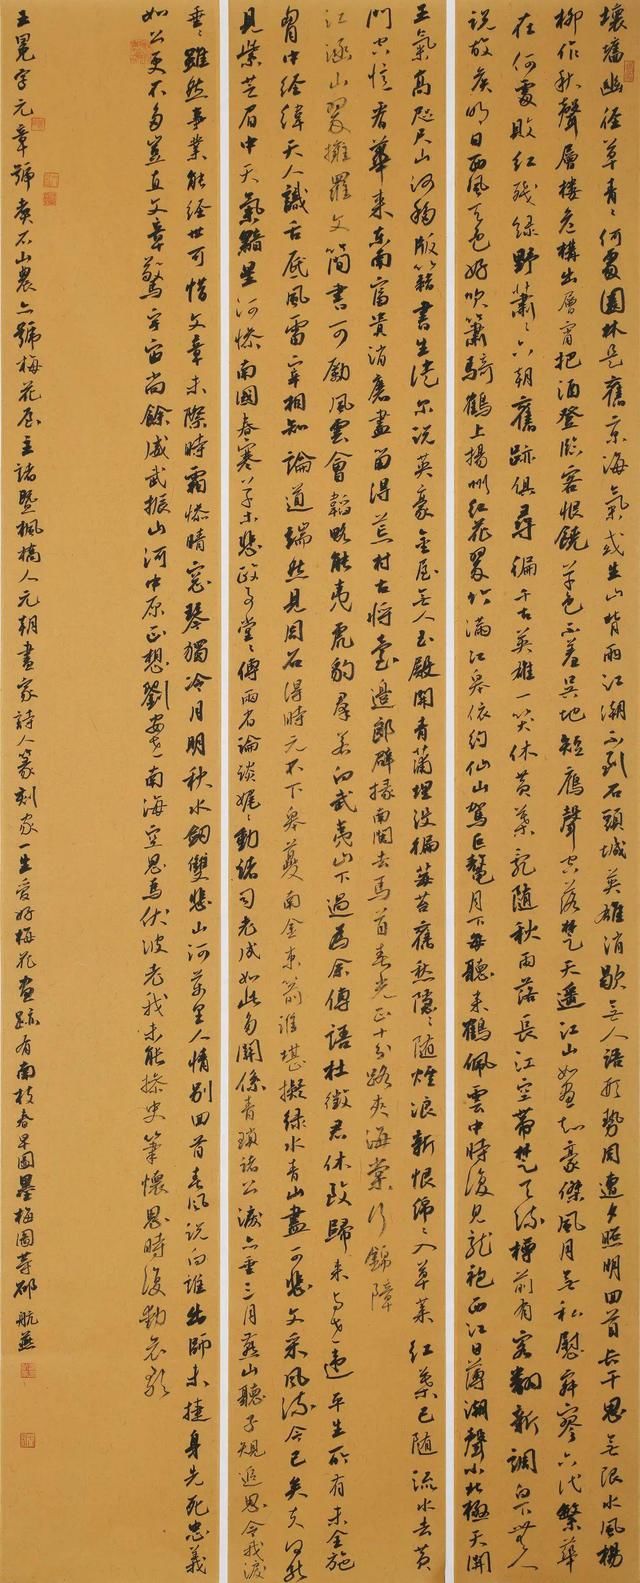 壞墻幽徑草青青何處園林是舊京海氣或生山背雨江潮不到石頭城英雄消歇無人語形勢周遭夕照明回首長干思無限水風楊
柳作秋聲層樓危構出層霄把酒登臨客恨饒草色不羞吳地短雁聲空落楚天遙江山如畫知豪傑風月無私慰寂寥六代繁華
在何處敗紅殘綠野蕭蕭六朝舊跡俱尋遍千古英雄一笑休黃葉亂隨秋雨落長江空帶楚天流樽前有客翻新調白下無人
說故侯明日西風天色好吹簫騎鶴上揚州紅花翠竹滿江皋依約仙山駕巨鰲月下每聽來鶴佩雲中時復見龍袍西江日薄潮聲小北極天開
王氣高咫尺山河歸版籍書生漫爾說英豪金屋無人玉殿開青蒲埋沒遍莓苔舊愁隱隱隨煙浪新恨綿綿入草萊紅葉已隨流水去黃
門空憶看華來東南富貴消磨盡留得荒村古將臺邊郎辟掾南閩去馬首春光正十分路夾海棠行錦障
江涵山翠擁羅文簡書可勵風雲會韜略能夷虎豹群若向武夷山下過為余傳語杜徵君休致歸來與老違平生所有未全施
胸中經緯天人識舌底風雷宰相知論道端然見周召得時元不下皋夔南金東箭誰堪擬綠水青山盡可悲文采風流今已矣又何能
見紫芝眉中天氣黯星河慘南國春寒草木悲政事堂堂傳兩省論談娓娓動諸司老成如此多關係青瑣諸公淚亦垂三月燕山聽子規追思令我淚
垂垂雖然事業能經世可惜文章未際時霜慘晴窗琴獨冷月明秋水劍雙悲山河萬里人情別回首春風說向誰出師未捷身先死忠義
如公更不多豈直文章驚宇宙尚餘威武振山河中原正想劉安老南海空思馬伏波老我未能操史筆懷思時復動哀歌
王冕字元章號煮石山農亦號梅花屋主諸暨楓橋人元朝畫家詩人篆刻家一生愛好梅花畫跡有南枝春早圖墨梅圖等邵航燕